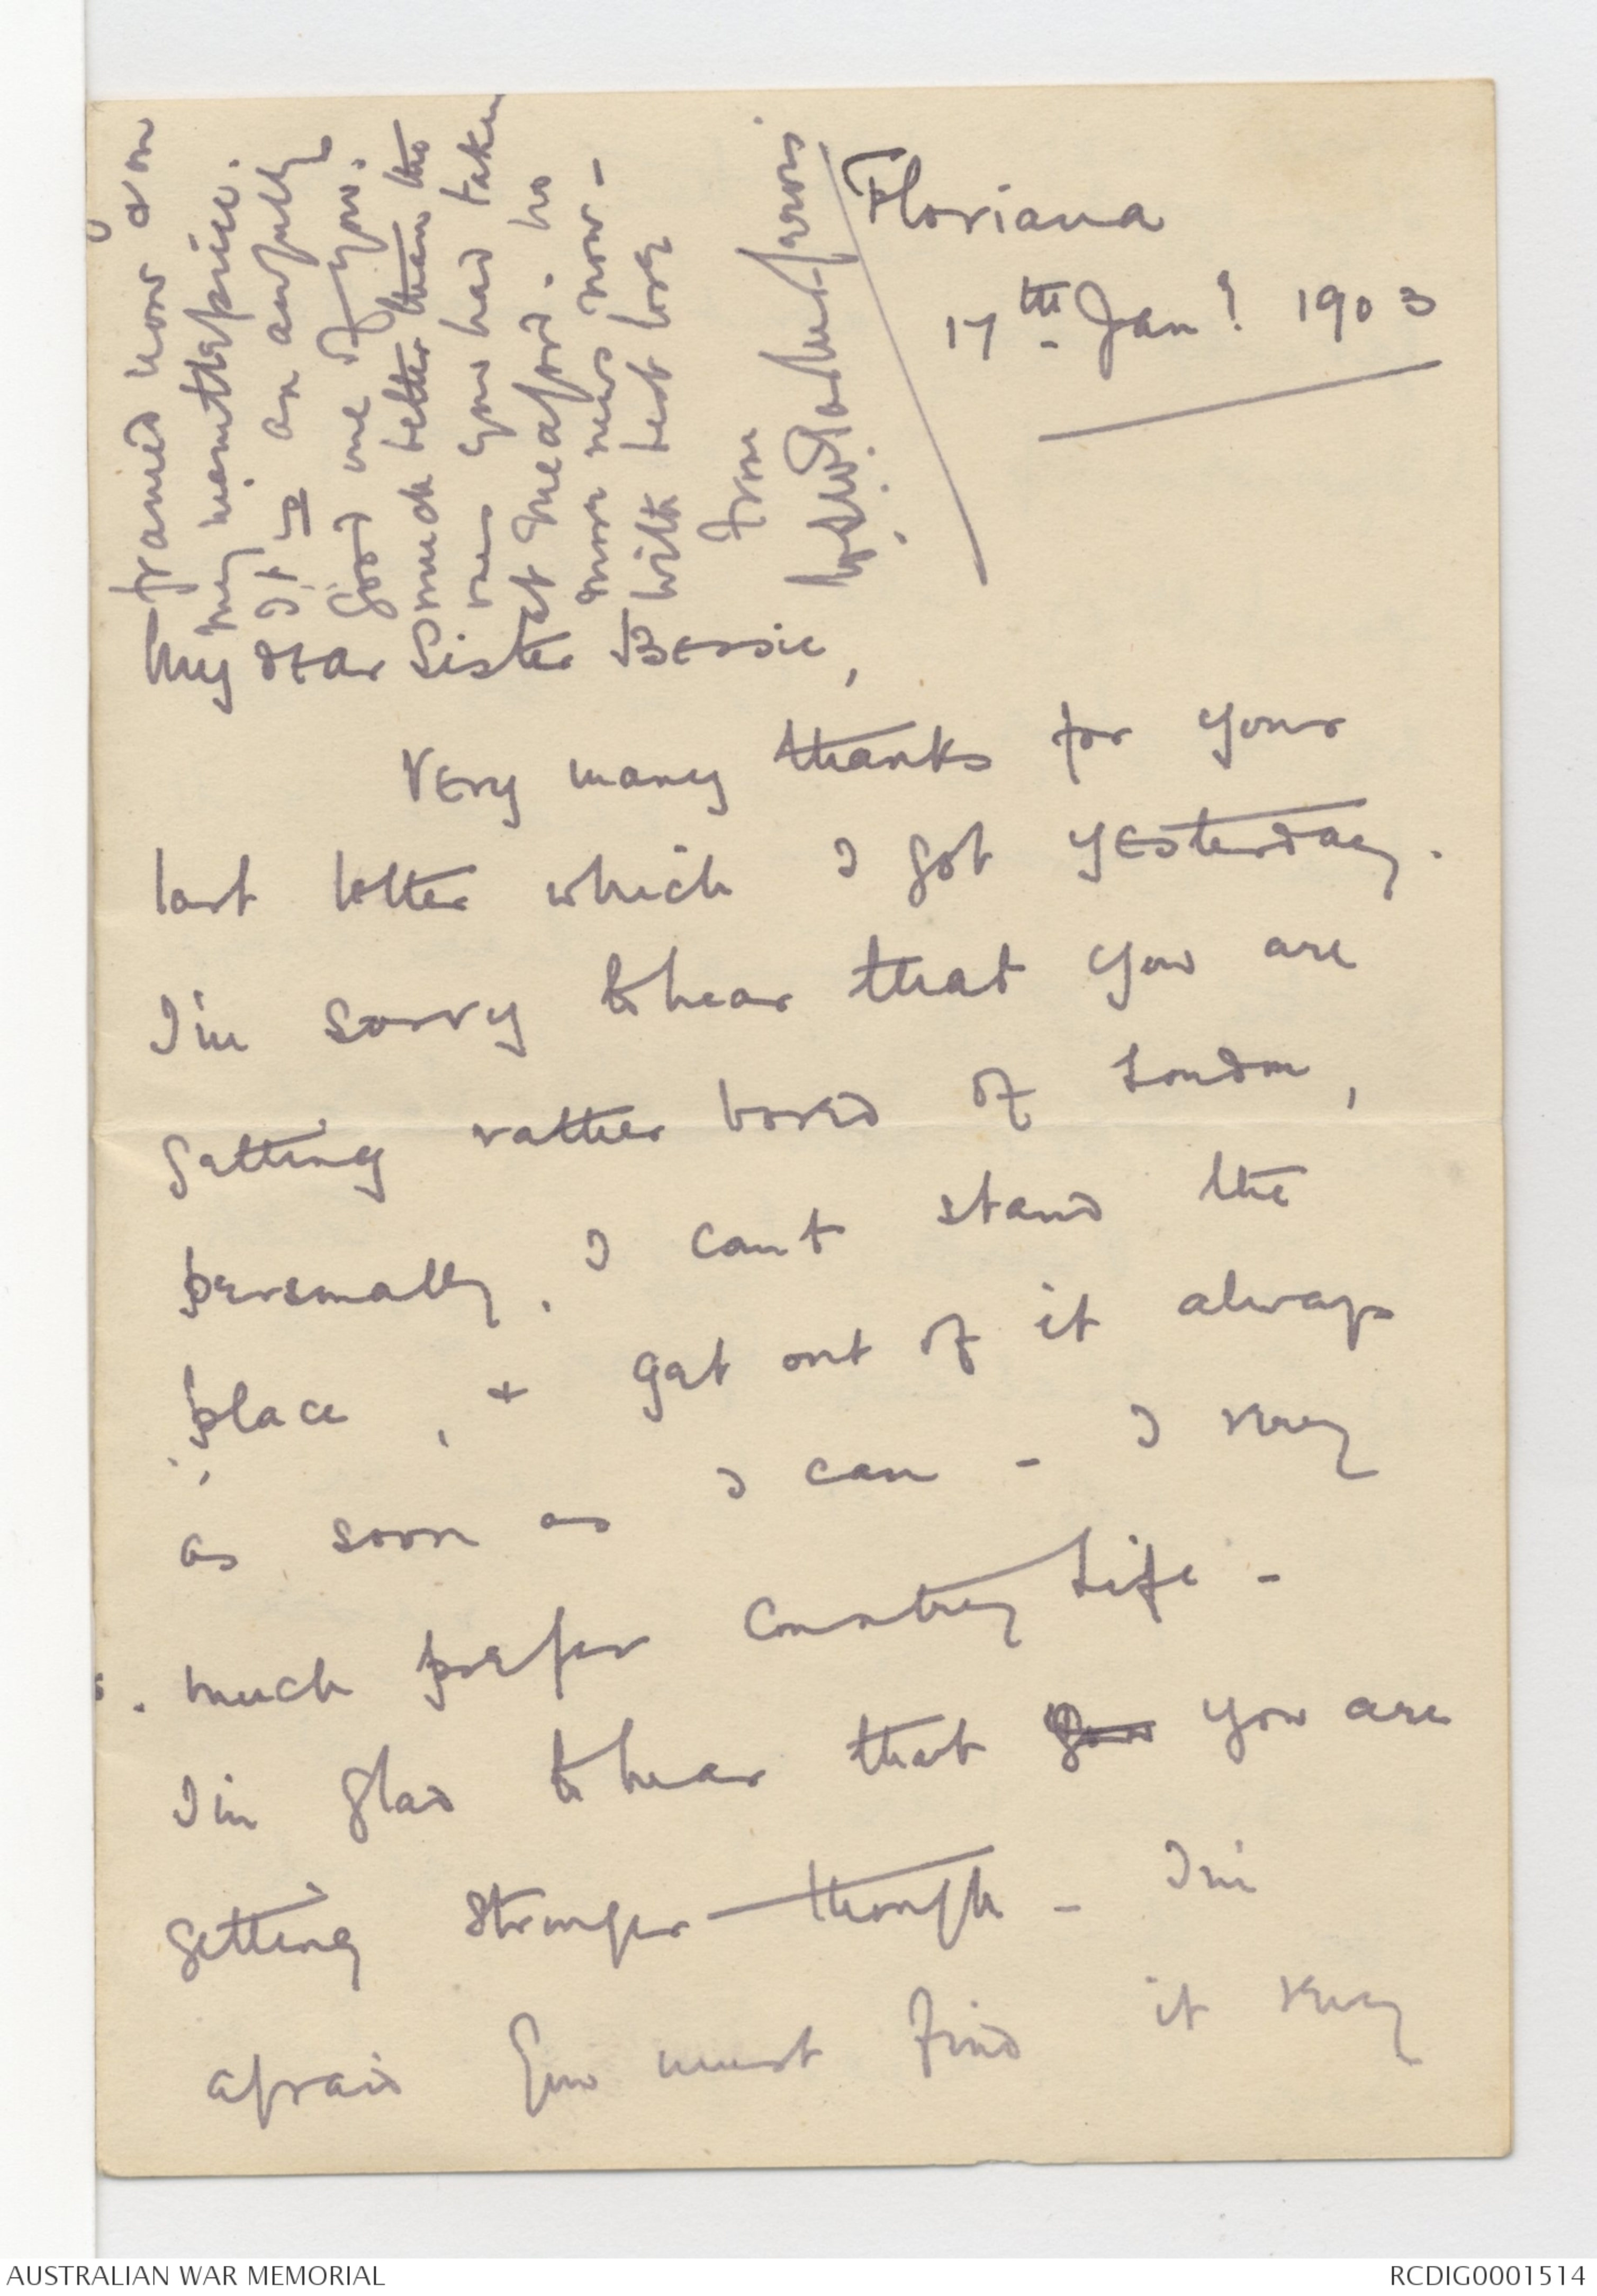 Floriana
17th Jany 1903
My dear Sister Bessie,
Very many thanks for your
last letter which I got yesterday.
I'm sorry to hear that you are
getting rather bored of London,
personally, I can't stand the
place, & get out of it always
as soon as I can - I very
much prefer Country Life -
I'm glad to hear that you you are
getting stronger though - I'm
afraid you must find it very
framed now & on
my mantlepiece.
It is an awfully
good one of you.
Much better than the
ones you had taken
at Meaford. no
more news now -
with best love
from
AUSTRALIAN WAR MEMORIAL
RCDIG0001514